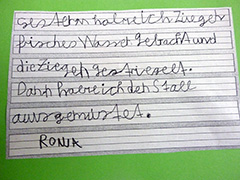 Gestern habe ich Zigen
frisches Wasser gebracht und
die Ziegen gestriegelt.
Dann habe ich den Stall
ausgemistet.
RONJA